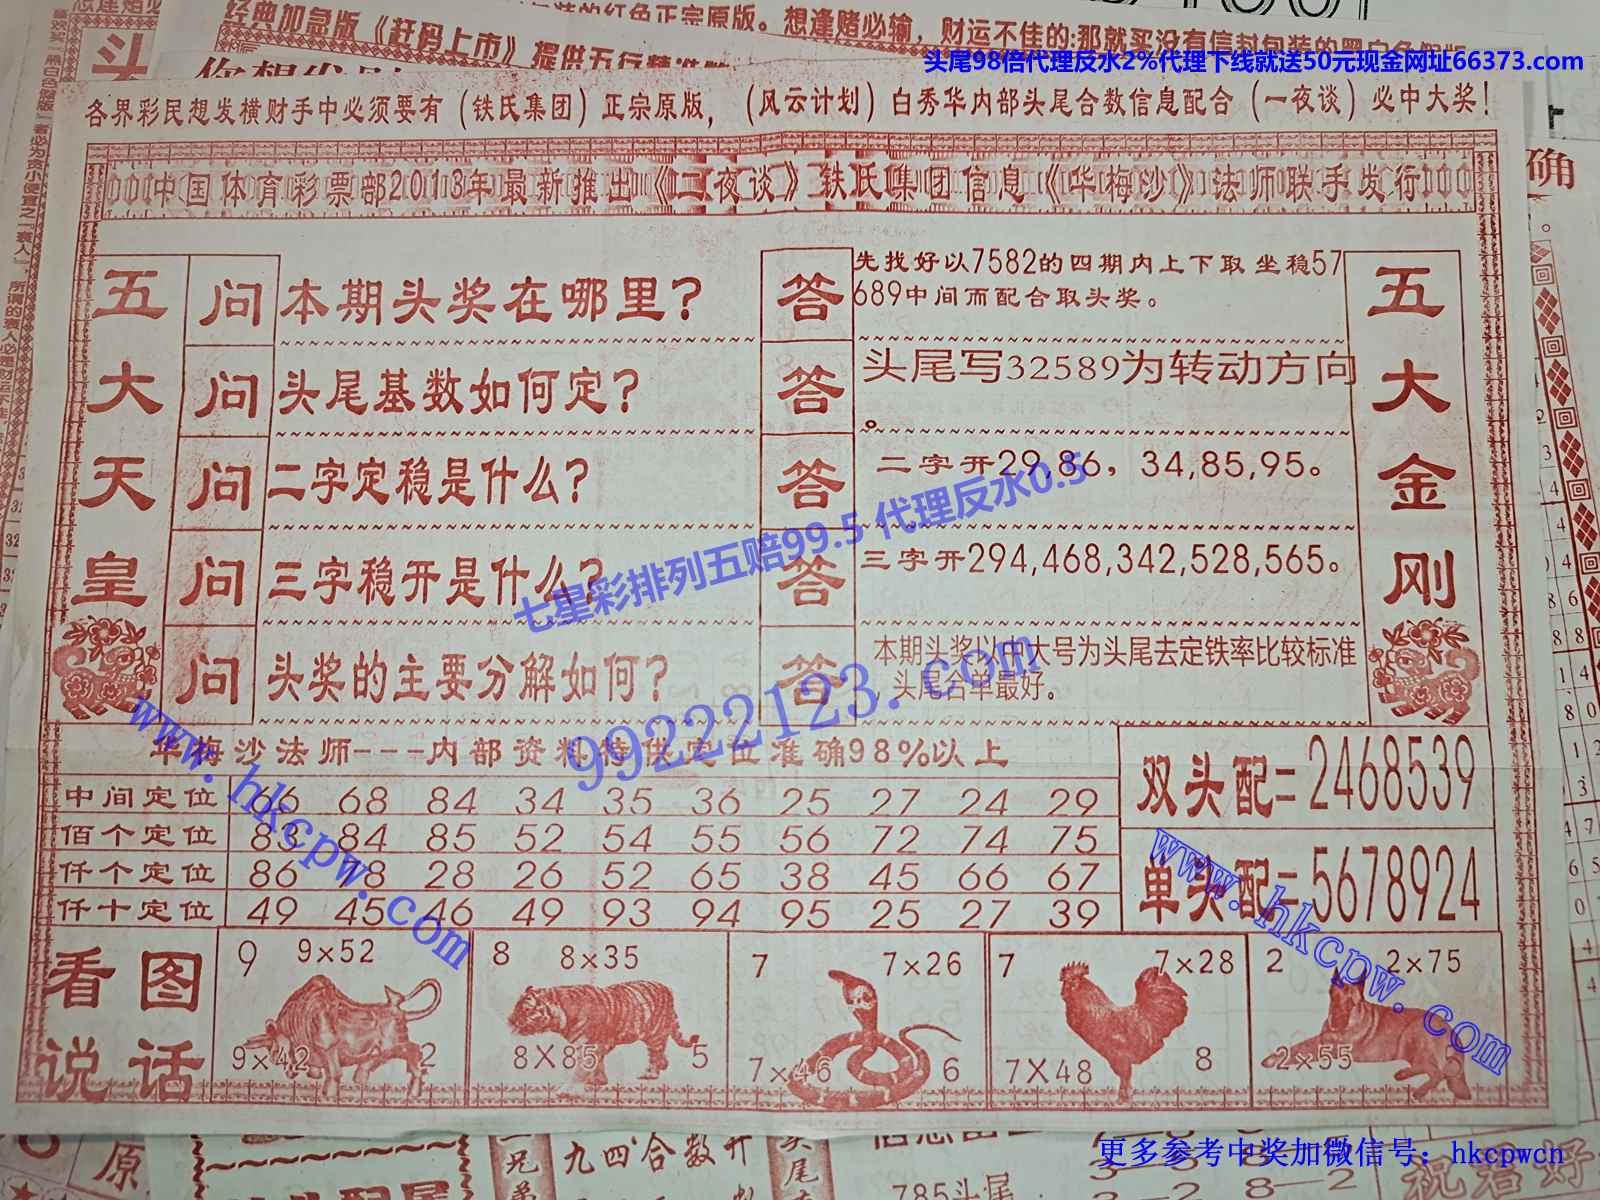 经典加急版《赶码上市》提供五行精准
装的红色正宗原版。想逢赌必输，财运不佳的:那就买没有信封包装的黑白色
头尾98倍代理反水2%代理下线就送50元现金网址66373.com
各界彩民想发横财手中必须要有（铁氏集团）正宗原版，（风云计划）白秀华内部头尾合数信息配合（一夜谈）必中大奖！
中国体育彩票部2013年最新推出《二夜谈》铁氏集团信息《华梅沙》法师联手发行
确
五大天皇
问 本期头奖在哪里?
答 先找好以7582的四期内上下取坐稳57
689中间而配合取头奖。
问 头尾基数如何定?
答 头尾写32589为转动方向
。
问 二字定稳是什么?
答 二字开29,86，34,85,95。
问 三字稳开是什么?
答 三字开294,468,342,528,565。
问 头奖的主要分解如何?
答 本期头奖以中大号为头尾去定铁率比较标准
头尾合单最好。
五大金刚
七星彩排列五赔99.5 代理反水0.5
99222123.com
www.hkcpw.com
华梅沙法师---内部资料特供定位准确98%以上
中间定位 66 68 84 34 35 36 25 27 24 29
佰个定位 83 84 85 52 54 55 56 72 74 75
仟个定位 86 78 28 26 52 65 38 45 66 67
仟十定位 49 45 46 49 93 94 95 25 27 39
双头配=2468539
单头配=5678924
www.hkcpw.com
看图说话
9 9×52
9×42 2
8 8×35
8X85 5
7 7×26
7×46 6
7 7×28
7X48 8
2 2×75
2×55
原
九四合数开
785头尾
祝君好
更多参考中奖加微信号：hkcpwcn